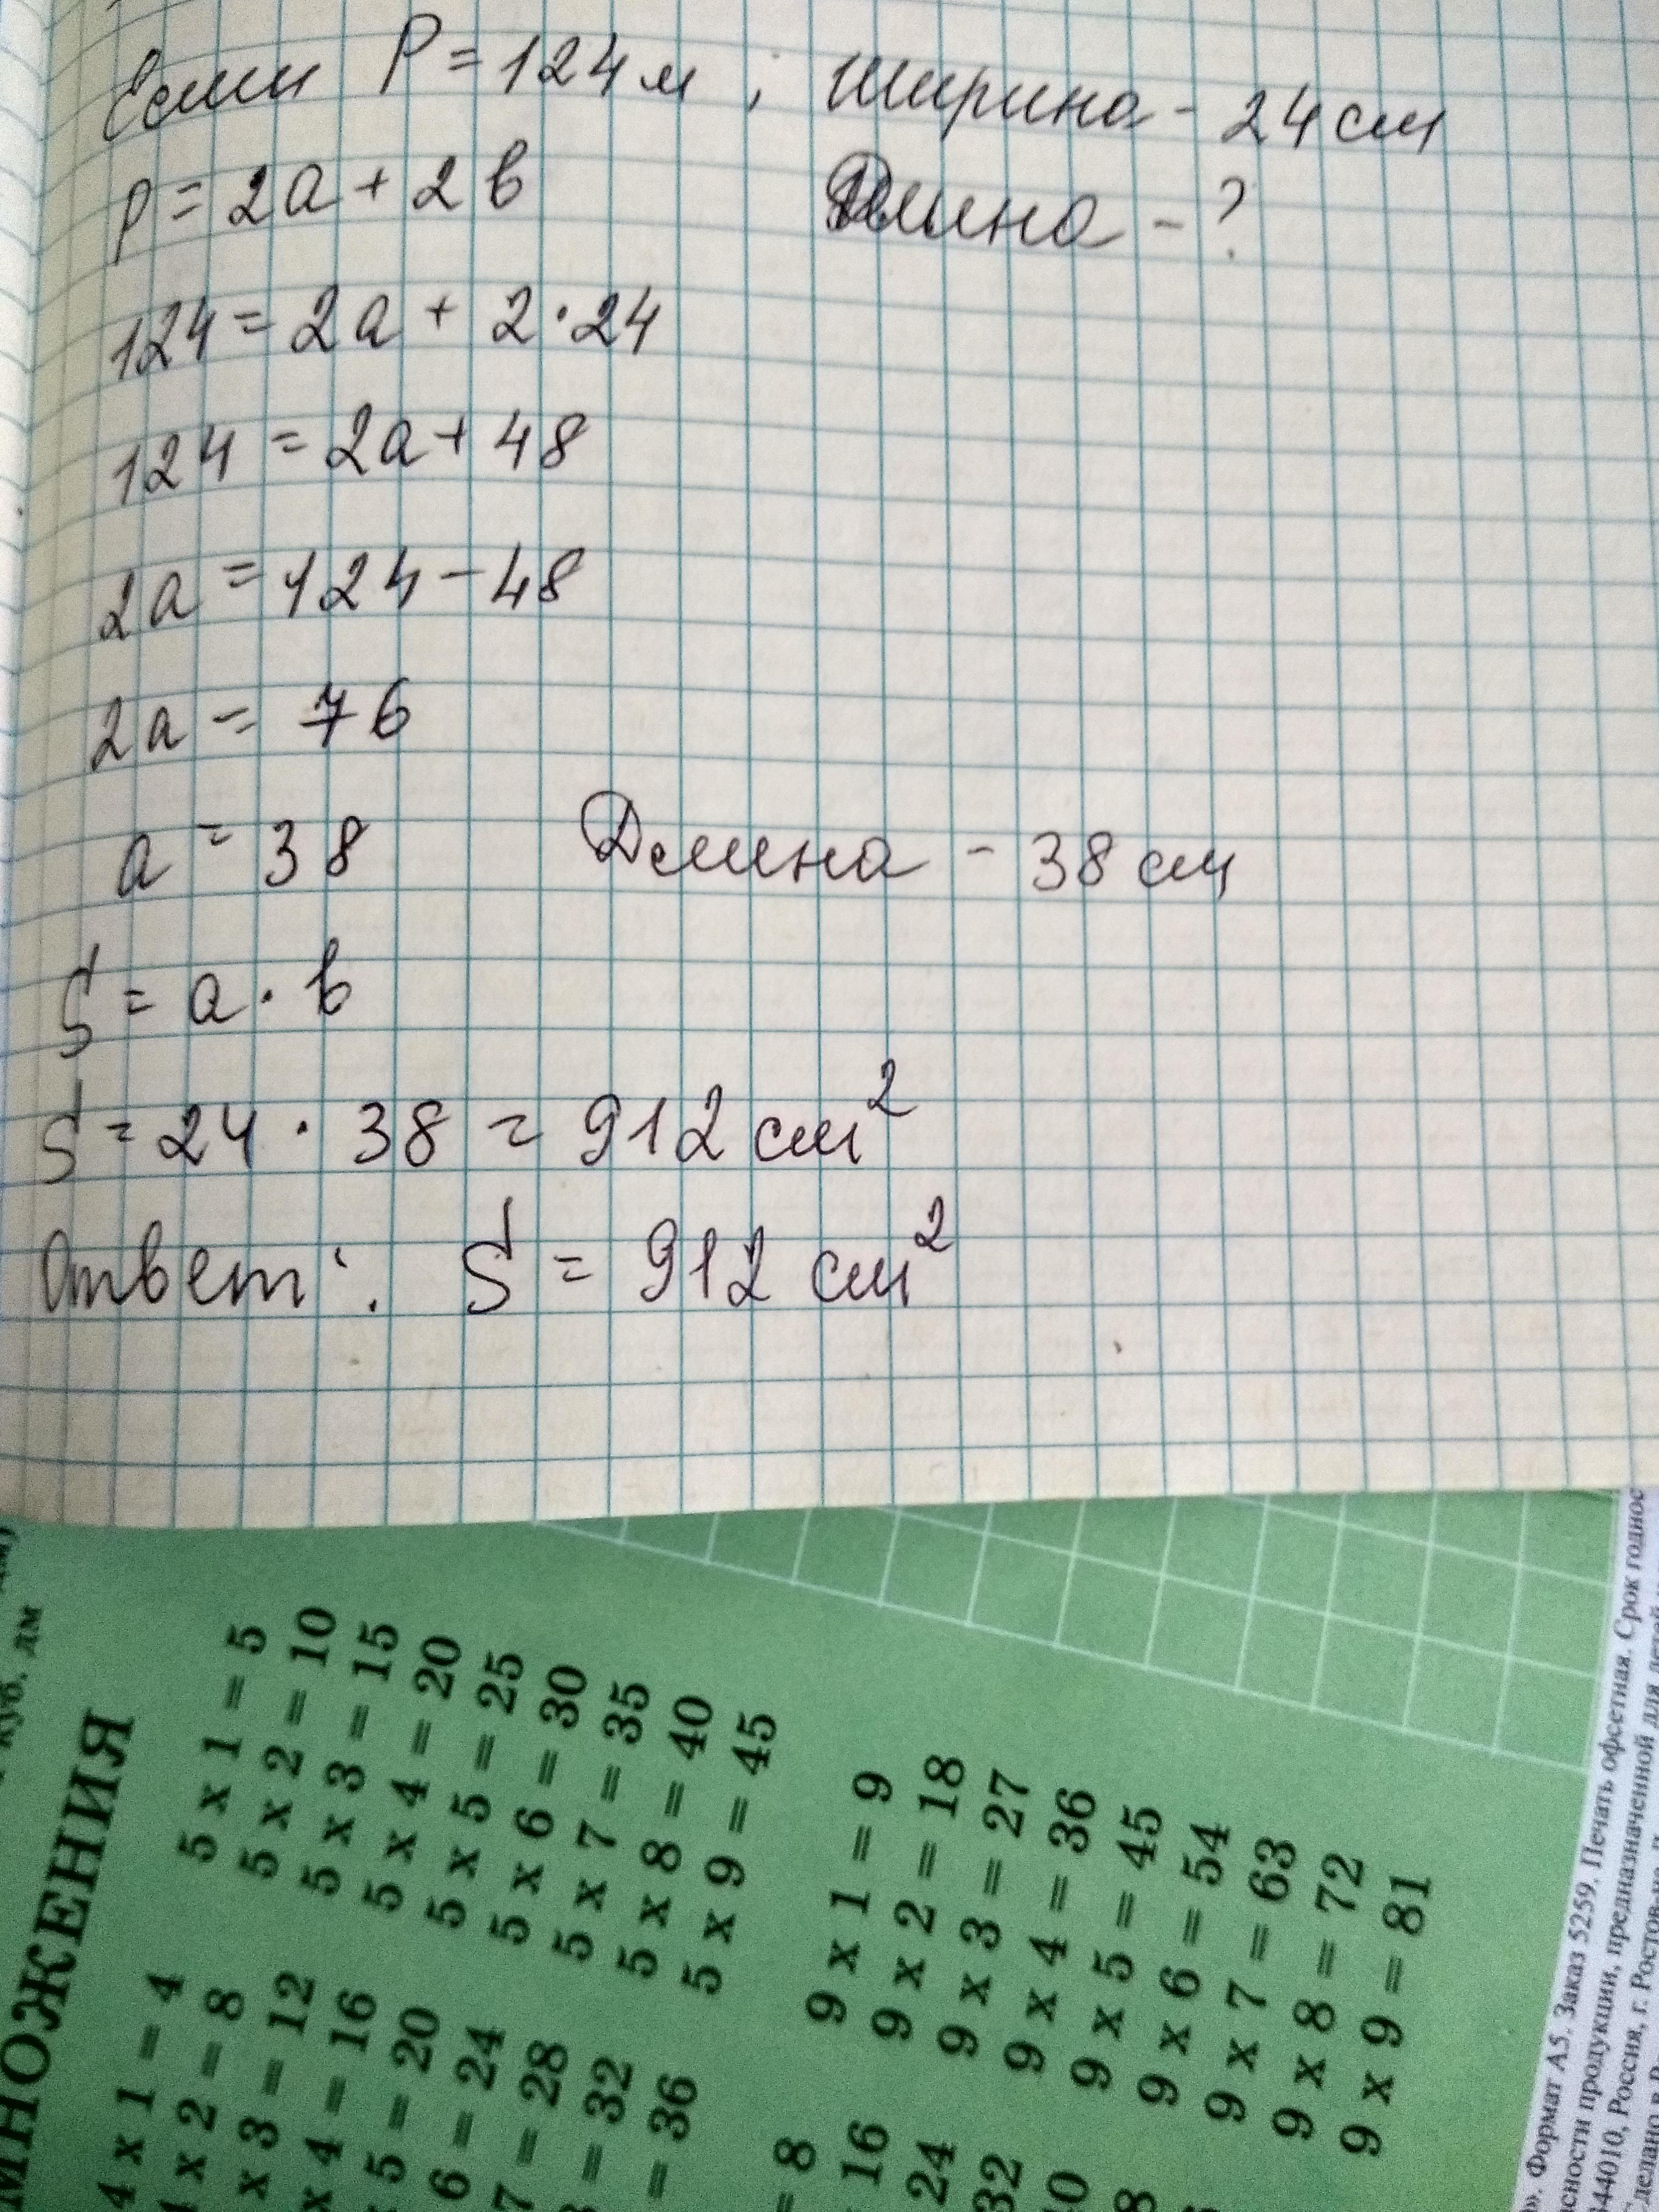 Если P = 124 м ; Ширина - 24 см
P = 2a + 2в Длина - ?
124 = 2a + 2·24
124 = 2a + 48
2a = 124 - 48
2a = 76
a = 38 Длина - 38 см
S = a · в
S = 24 · 38 = 912 см²
Ответ: S = 912 см²
куб. дм
МНОЖЕНИЯ
5 x 1 = 5
5 x 2 = 10
5 x 3 = 15
5 x 4 = 20
5 x 5 = 25
5 x 6 = 30
5 x 7 = 35
5 x 8 = 40
5 x 9 = 45
4 x 1 = 4
4 x 2 = 8
x 3 = 12
x 4 = 16
x 5 = 20
6 = 24
7 = 28
= 32
= 36
9 x 1 = 9
9 x 2 = 18
9 x 3 = 27
9 x 4 = 36
9 x 5 = 45
9 x 6 = 54
9 x 7 = 63
9 x 8 = 72
9 x 9 = 81
= 8
16
24
32
Формат А5. Заказ 5259. Печать офсетная. Срок годнос
сности продукции, предназначенной для детей
44010, Россия, г. Ростов-на-
делано в